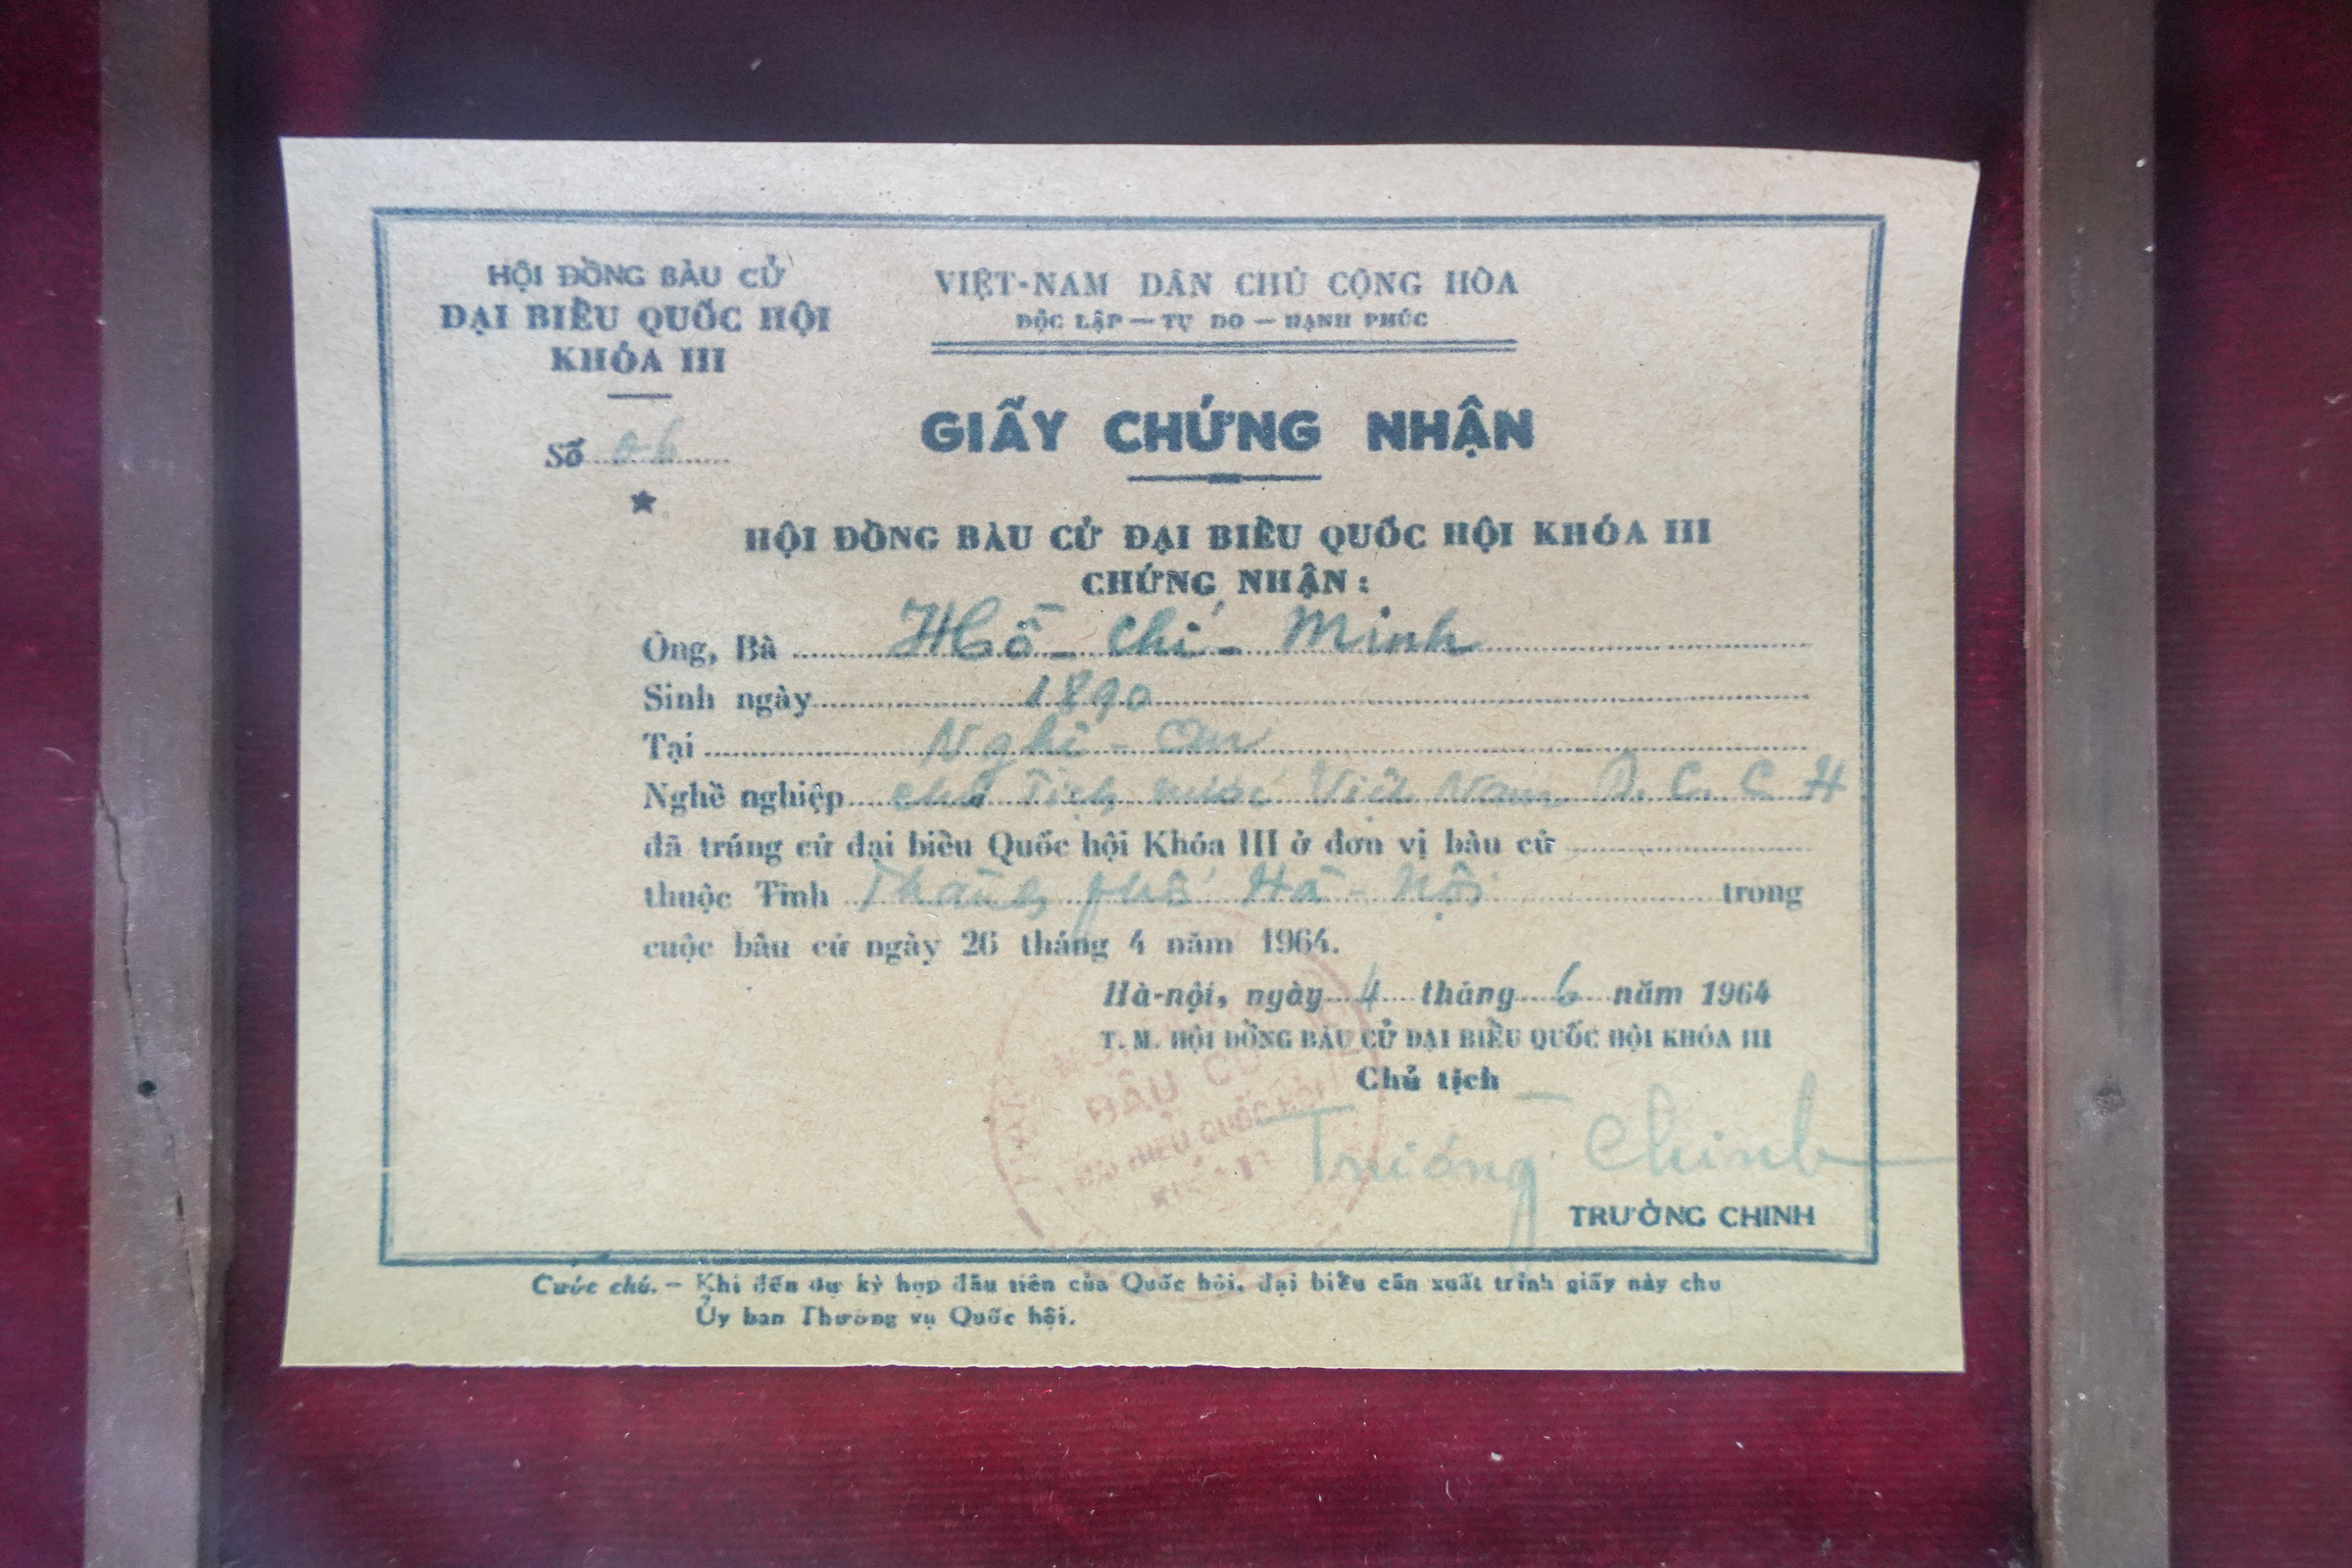 HỘI ĐỒNG BẦU CỬ
ĐẠI BIỂU QUỐC HỘI
KHÓA III
Số
VIỆT-NAM DÂN CHỦ CỘNG HÒA
ĐỘC LẬP — TỰ DO — HẠNH PHÚC
GIẤY CHỨNG NHẬN
HỘI ĐỒNG BẦU CỬ ĐẠI BIỂU QUỐC HỘI KHÓA III
CHỨNG NHẬN :
Ông, Bà Hồ - Chí - Minh
Sinh ngày 1890
Tại Nghệ - An
Nghề nghiệp Chủ Tịch nước Việt Nam D. C. C. H
đã trúng cử đại biểu Quốc hội Khóa III ở đơn vị bầu cử
thuộc Tỉnh Thành phố Hà - Nội trong
cuộc bầu cử ngày 26 tháng 4 năm 1964.
Hà-nội, ngày 4 tháng 6 năm 1964
T. M. HỘI ĐỒNG BẦU CỬ ĐẠI BIỂU QUỐC HỘI KHÓA III
Chủ tịch
BẦU CỬ
ĐẠI BIỂU QUỐC HỘI
Trường Chinh
TRƯỜNG CHINH
Cước chú. — Khi đến dự kỳ họp đầu tiên của Quốc hội, đại biểu cần xuất trình giấy này cho
Ủy ban Thường vụ Quốc hội.